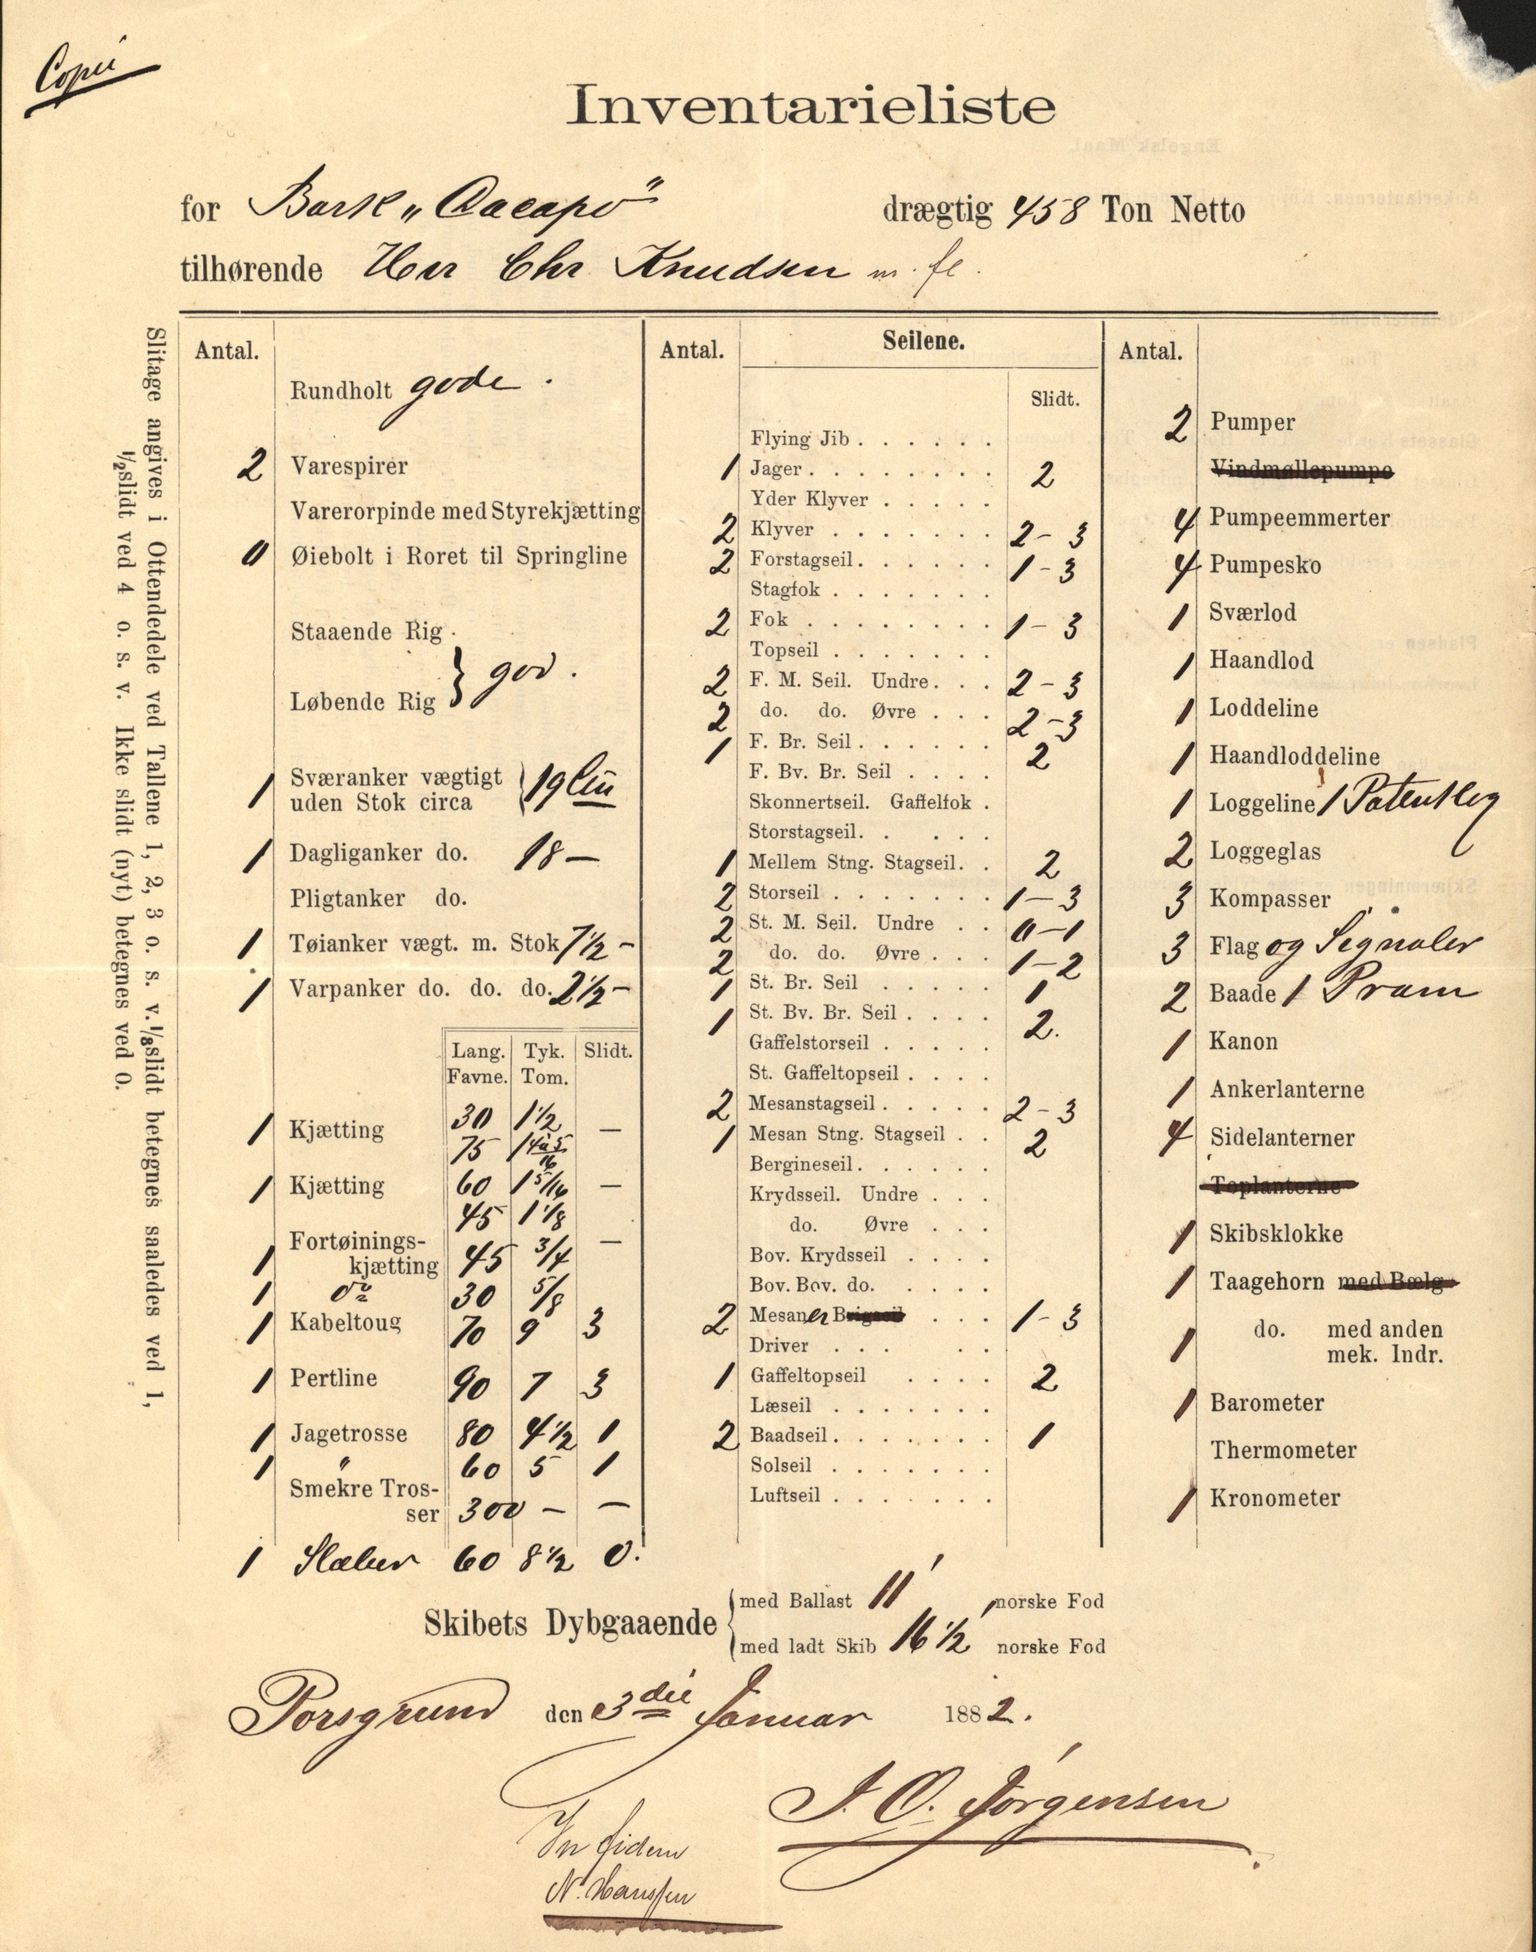 Copii
Inventarieliste
for Bark „Dacapo" drægtig 458 Ton Netto
tilhørende Herr Chr Knudsen m. fl.
Slitage angives i Ottendedele ved Tallene 1, 2, 3 o. s. v. 1/8 slidt betegnes saaledes ved 1,
1/2 slidt ved 4 o. s. v. Ikke slidt (nyt) betegnes ved 0.
Antal.
Rundholt gode.
2 Varespirer
Varerorpinde med Styrekjætting
0 Øiebolt i Roret til Springline
Staaende Rig.
Løbende Rig } god.
1 Sværanker vægtigt
uden Stok circa { 19
1 Dagliganker do. 18 —
Pligtanker do.
1 Tøianker vægt. m. Stok 7 1/2 —
1 Varpanker do. do. do. 2 1/2 —
Lang. Tyk. Slidt.
Favne. Tom.
1 Kjætting 30 1 1/2 —
75 1 4 à 5/16
1 Kjætting 60 1 5/16 —
45 1 1/8
1 Fortøinings- —
kjætting 45 3/4
1 do 30 5/8
1 Kabeltoug 70 9 3
1 Pertline 90 7 3
1 Jagetrosse 80 4 1/2 1
1 " 60 5 1
Smekre Tros-
ser 300 — —
1 Slæber 60 8 1/2 0.
Antal. Seilene.
Slidt.
Flying Jib . . . . . .
1 Jager . . . . . . . . 2
Yder Klyver . . . . .
2 Klyver . . . . . . . 2 - 3
2 Forstagseil . . . . . . 1 - 3
Stagfok . . . . . . .
2 Fok . . . . . . . . 1 - 3
Topseil . . . . . . .
2 F. M. Seil. Undre . . . 2 - 3
2 do. do. Øvre . . . 2 - 3
1 F. Br. Seil . . . . . . 2
F. Bv. Br. Seil . . . .
Skonnertseil. Gaffelfok .
Storstagseil . . . . .
1 Mellem Stng. Stagseil . . 2
2 Storseil . . . . . . . 1 - 3
2 St. M. Seil. Undre . . 0 - 1
2 do. do. Øvre . . . 1 - 2
1 St. Br. Seil . . . . . 1
1 St. Bv. Br. Seil . . . . 2.
Gaffelstorseil . . . . .
St. Gaffeltopseil . . . .
2 Mesanstagseil . . . . . 2 - 3
1 Mesan Stng. Stagseil . . 2
Bergineseil . . . . . .
Krydsseil. Undre . . .
do. Øvre . . .
Bov. Krydsseil . . . .
Bov. Bov. do. . . . .
2 Mesaner Brigseil . . . 1 - 3
Driver . . . . .
1 Gaffeltopseil . . . . 2
Læseil . . . . . . .
2 Baadseil . . . . . . . 1
Solseil . . . . . . .
Luftseil . . . . . . .
Antal.
2 Pumper
Vindmøllepumpe
4 Pumpeemmerter
4 Pumpesko
1 Sværlod
1 Haandlod
1 Loddeline
1 Haandloddeline
1 Loggeline 1 Patentlog
2 Loggeglas
3 Kompasser
3 Flag og Signaler
2 Baade 1 Pram
1 Kanon
1 Ankerlanterne
4 Sidelanterner
Toplanterne
1 Skibsklokke
1 Taagehorn med Bælg
1 do. med anden
mek. Indr.
1 Barometer
Thermometer
1 Kronometer
Skibets Dybgaaende { med Ballast 11' norske Fod
med ladt Skib 16 1/2' norske Fod
Porsgrund den 3die Januar 1882.
J. C. Jörgensen
In fidem
N. Hanssen